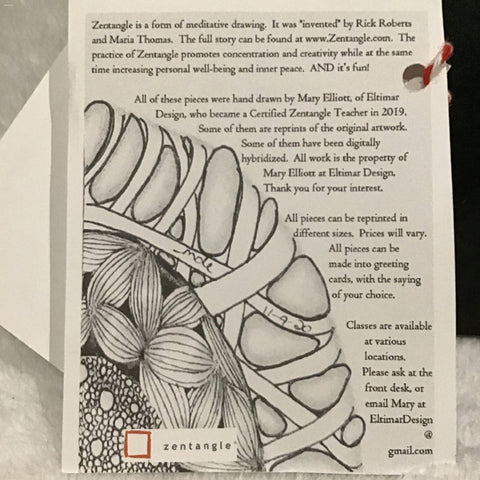 Zentangle is a form of meditative drawing. It was "invented" by Rick Roberts
and Maria Thomas. The full story can be found at www.Zentangle.com. The
practice of Zentangle promotes concentration and creativity while at the same
time increasing personal well-being and inner peace. AND it's fun!
All of these pieces were hand drawn by Mary Elliott, of Eltimar
Design, who became a Certified Zentangle Teacher in 2019.
Some of them are reprints of the original artwork.
Some of them have been digitally
hybridized. All work is the property of
Mary Elliott at Eltimar Design.
Thank you for your interest.
All pieces can be reprinted in
different sizes. Prices will vary.
All pieces can be
made into greeting
cards, with the saying
of your choice.
11-9-20
Classes are available
at various
locations.
Please ask at the
front desk, or
email Mary at
EltimarDesign
@
gmail.com
zentangle®